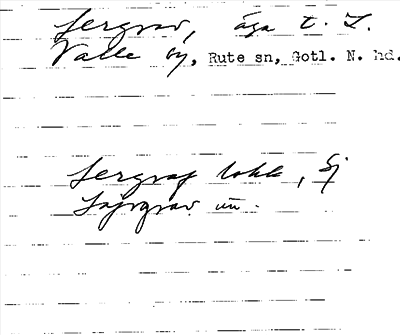 Lergrav, äga t. L.
Valle by, Rute sn, Gotl. N. hd.
Lergrav lokk, Ej
Lajrgrav un.